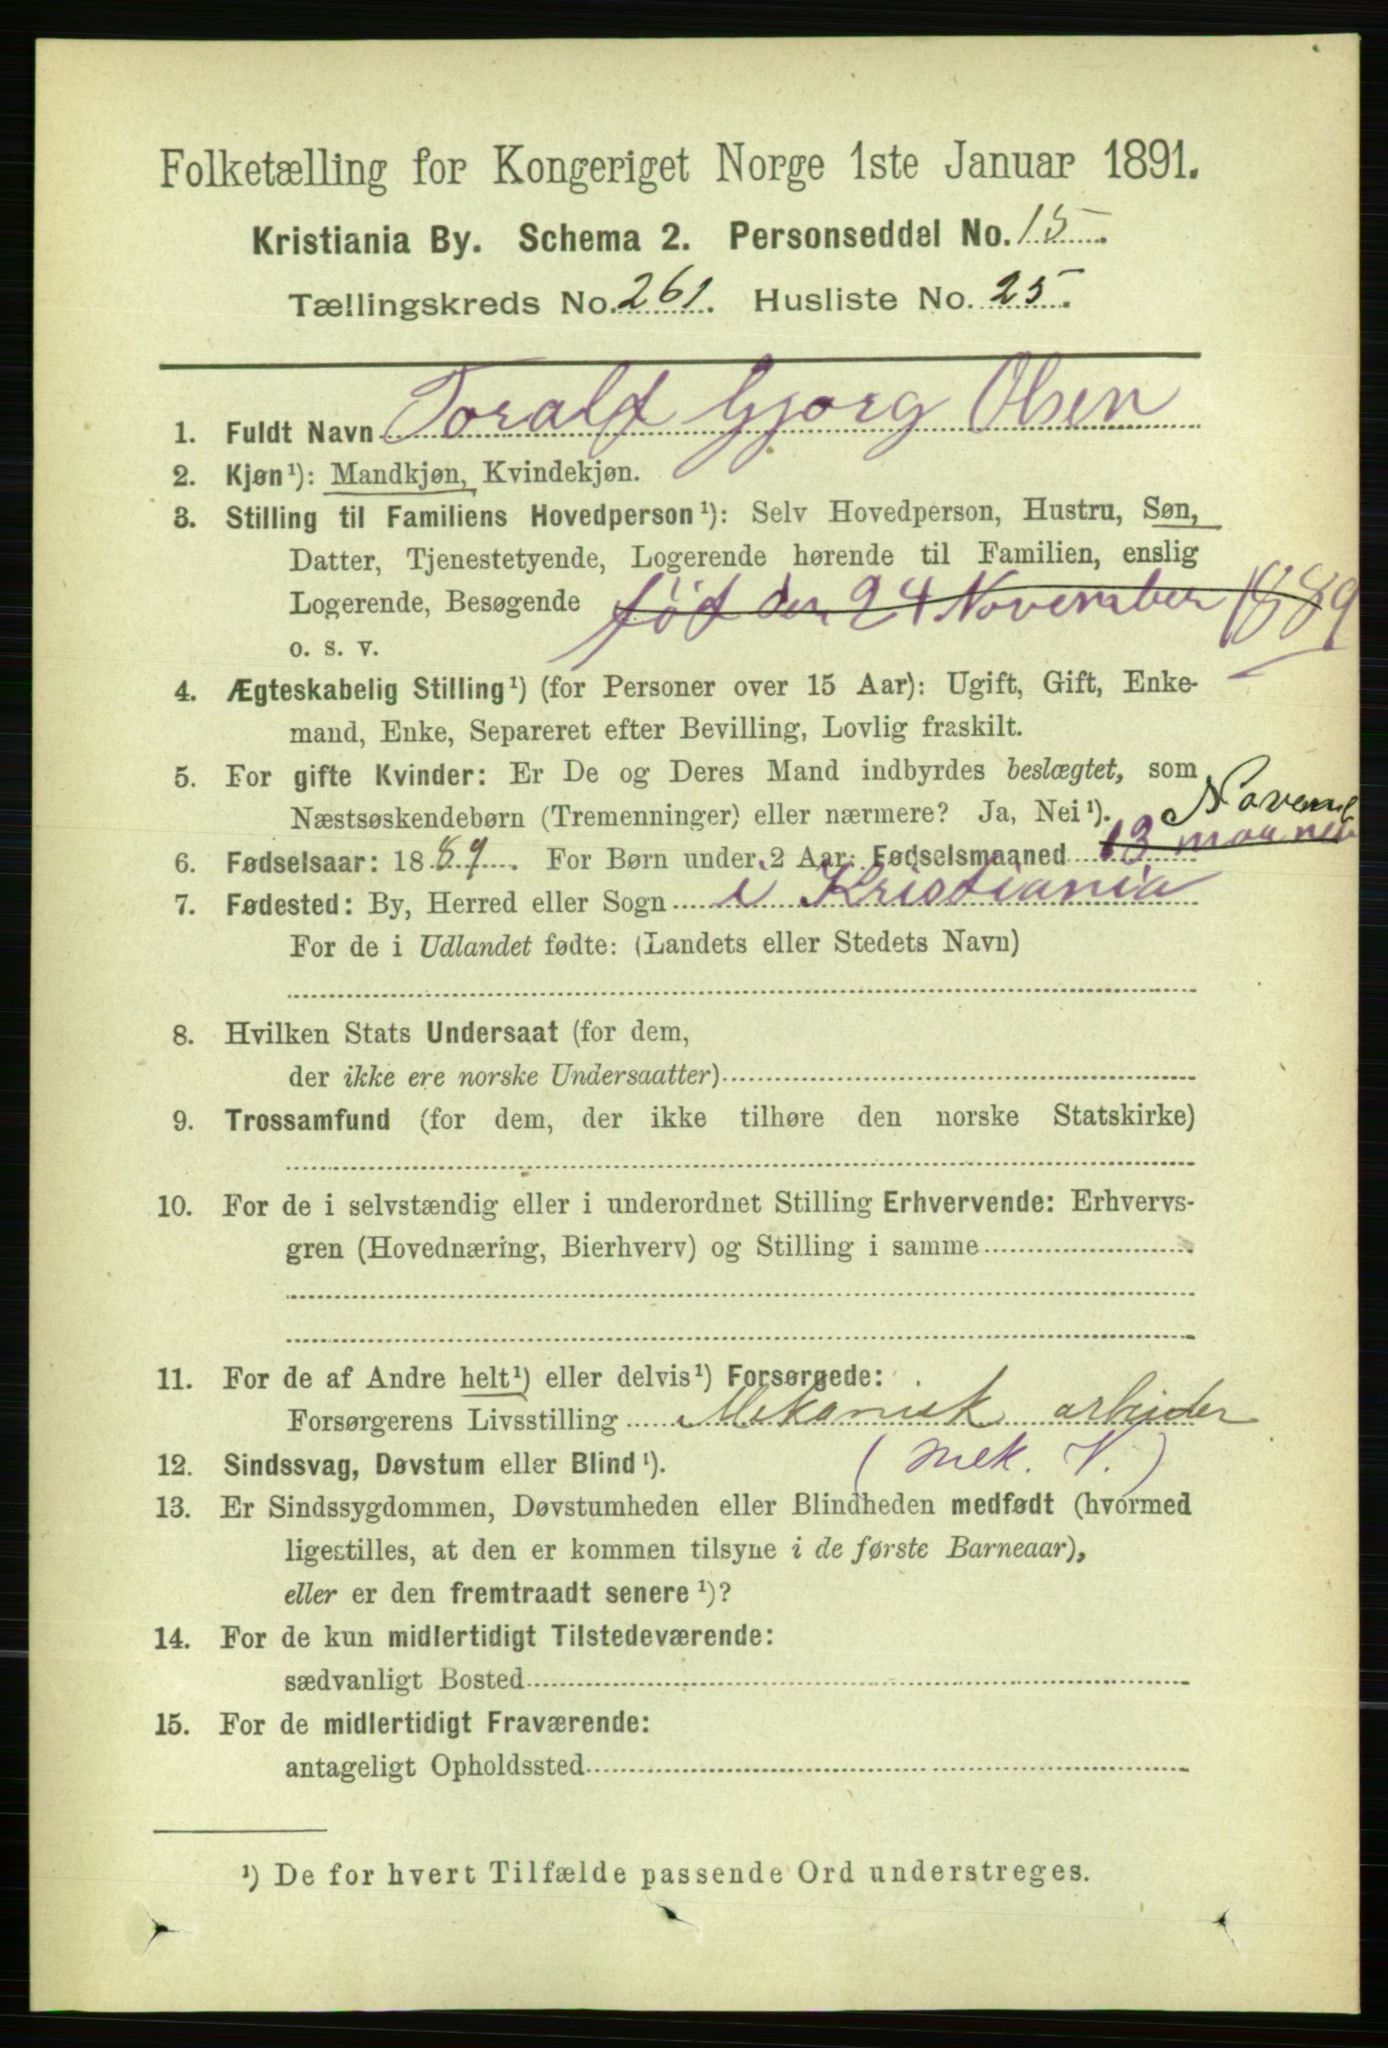 Folketælling for Kongeriget Norge 1ste Januar 1891.
Kristiania By. Schema 2. Personseddel No. 15.
Tællingskreds No. 261. Husliste No. 25.
1. Fuldt Navn Toralf Gjorg Olsen
2. Kjøn¹): Mandkjøn, Kvindekjøn.
3. Stilling til Familiens Hovedperson¹): Selv Hovedperson, Hustru, Søn,
Datter, Tjenestetyende, Logerende hørende til Familien, enslig
Logerende, Besøgende født den 24 November 1889
o. s. v.
4. Ægteskabelig Stilling¹) (for Personer over 15 Aar): Ugift, Gift, Enke-
mand, Enke, Separeret efter Bevilling, Lovlig fraskilt.
5. For gifte Kvinder: Er De og Deres Mand indbyrdes beslægtet, som
Næstsøskendebørn (Tremenninger) eller nærmere? Ja, Nei¹).
Novemb
6. Fødselsaar: 1889. For Børn under 2 Aar: Fødselsmaaned 13 maaned
7. Fødested: By, Herred eller Sogn i Kristiania
For de i Udlandet fødte: (Landets eller Stedets Navn)
8. Hvilken Stats Undersaat (for dem,
der ikke ere norske Undersaatter)
9. Trossamfund (for dem, der ikke tilhøre den norske Statskirke)
10. For de i selvstændig eller i underordnet Stilling Erhvervende: Erhvervs-
gren (Hovednæring, Bierhverv) og Stilling i samme
11. For de af Andre helt¹) eller delvis¹) Forsørgede:
Forsørgerens Livsstilling Mekanisk arbeider
(Mek. V.)
12. Sindssvag, Døvstum eller Blind¹).
13. Er Sindssygdommen, Døvstumheden eller Blindheden medfødt (hvormed
ligestilles, at den er kommen tilsyne i de første Barneaar),
eller er den fremtraadt senere¹)?
14. For de kun midlertidigt Tilstedeværende:
sædvanligt Bosted
15. For de midlertidigt Fraværende:
antageligt Opholdssted
¹) De for hvert Tilfælde passende Ord understreges.